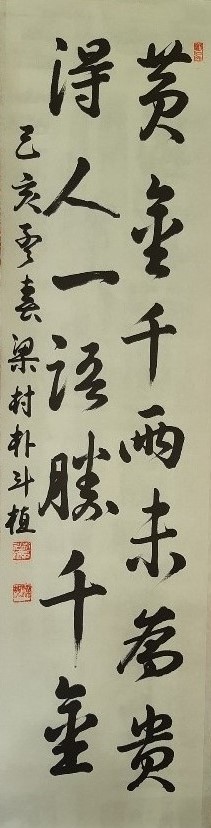 黃金千兩未為貴
得人一語勝千金
己亥春梁村朴斗植